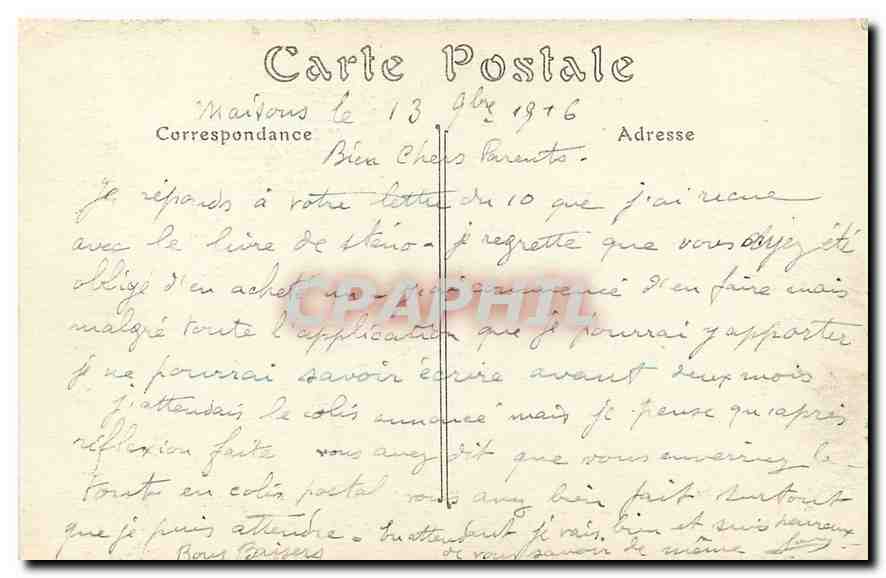 Carte Postale
Maisons le 13 9bre 1916
Correspondance Adresse
Bien Chers Parents.
Je réponds à votre lettre du 10 que j'ai recue
avec le livre de sténo - je regrette que vous ayez été
obligé d'en acheté un - j'ai commencé d'en faire mais
malgré toute l'application que je pourrai y apporter
je ne pourrai savoir écrire avant deux mois
j'attendais le colis annoncé mais je pense qu'après
réflexion faite vous avez dit que vous enverriez le
tout en colis postal vous avez bien fait surtout
que je puis attendre. En attendant je vais bien et suis heureux
Bons Baisers de vous savoir de même
CPAPHIL